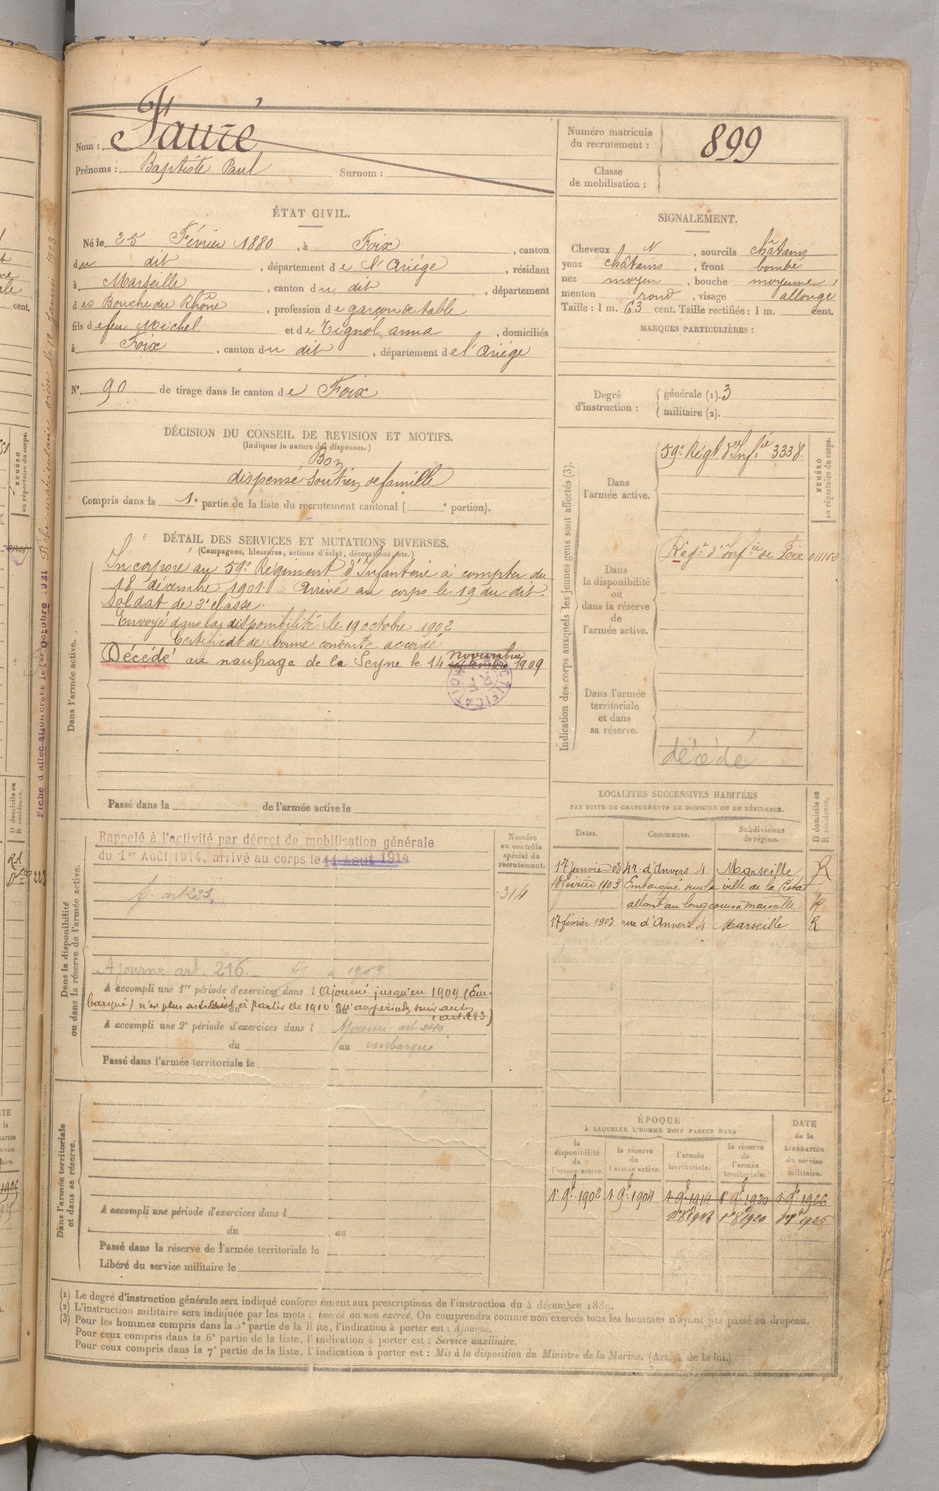 Nom : Fauré
Prénoms : Baptiste Paul Surnom :
Numéro matricule du recrutement : 899
Classe de mobilisation :
ÉTAT CIVIL.
Né le 25 Février 1880, à Foix, canton
du dit, département de l'Ariége, résidant
à Marseille, canton du dit, département
des Bouche du Rhône, profession de garçon de table
fils de feu Michel et de Tignol anna, domiciliés
à Foix, canton du dit, département de l'Ariége
N° 90 de tirage dans le canton de Foix
SIGNALEMENT.
Cheveux N, sourcils châtains
yeux châtains, front bombé
nez moyen, bouche moyenne
menton rond, visage allongé
Taille : 1 m. 63 cent. Taille rectifiée : 1 m. cent.
MARQUES PARTICULIÈRES :
Degré d'instruction : générale (1). 3
militaire (2).
DÉCISION DU CONSEIL DE REVISION ET MOTIFS.
(Indiquer la nature des dispenses.)
Bon
dispensé soutien de famille
Compris dans la 1e partie de la liste du recrutement cantonal ( e portion).
DÉTAIL DES SERVICES ET MUTATIONS DIVERSES.
(Campagnes, blessures, actions d'éclat, décorations, etc.)
Dans l'armée active.
Incorporé au 59e Régiment d'Infanterie à compter du
18 décembre 1901 Arrivé au corps le 19 du dit.
Soldat de 2e classe.
Envoyé dans la disponibilité le 19 octobre 1902
Certificat de bonne conduite accordé
novembre
Décédé au naufrage de la Seyne le 14 septembre 1909
RECTIFICATION
R F
Passé dans la de l'armée active le
Indication des corps auxquels les jeunes gens sont affectés (3).
NUMÉRO au répertoire du corps.
Dans l'armée active.
59e Régt d'Infie 3338
Dans la disponibilité ou dans la réserve de l'armée active.
Régt d'Infie de Foix
Dans l'armée territoriale et dans sa réserve.
décédé
Dans la disponibilité ou dans la réserve de l'armée active.
Numéro au contrôle spécial du recrutement.
314
Rappelé à l'activité par décret de mobilisation générale
du 1er Août 1914, arrivé au corps le 11 Août 1914
art 223
Ajourné art. 216. 1909
A accompli une 1re période d'exercices dans l Ajourné jusqu'en 1909 (Em-
barqué) n'est plus à partir de 1910
(art. 223.)
A accompli une 2e période d'exercices dans l Ajourné art 240
du au embarqué
Passé dans l'armée territoriale le
LOCALITÉS SUCCESSIVES HABITÉES
PAR SUITE DE CHANGEMENTS DE DOMICILE OU DE RÉSIDENCE.
D domicile ou R résidence.
Dates. Communes. Subdivisions de région.
17 janvier 03 r. d'Anvers 4 Marseille R
18 février 1903 Embarqué sur la ville de la Ciotat
allant au long cours Marseille R
17 février 1903 rue d'Anvers 4 Marseille R
Dans l'armée territoriale et dans sa réserve.
A accompli une période d'exercices dans l
du au
Passé dans la réserve de l'armée territoriale le
Libéré du service militaire le
ÉPOQUE
À LAQUELLE L'HOMME DOIT PASSER DANS
DATE de la LIBÉRATION du service militaire.
la disponibilité de l'armée active. la réserve de l'armée active. l'armée territoriale. la réserve de l'armée territoriale.
1er 9bre 1902 1er 9bre 1904 1er 9bre 1914 1er 9bre 1920 1er 9bre 1926
(1) Le degré d'instruction générale sera indiqué conformément aux prescriptions de l'instruction du 4 décembre 1889.
(2) L'instruction militaire sera indiquée par les mots : exercé ou non exercé. On comprendra comme non exercés tous les hommes n'ayant pas passé au drapeau.
(3) Pour les hommes compris dans la 5e partie de la liste, l'indication à porter est : Ajourné.
Pour ceux compris dans la 6e partie de la liste, l'indication à porter est : Service auxiliaire.
Pour ceux compris dans la 7e partie de la liste, l'indication à porter est : Mis à la disposition du Ministre de la Marine. (Art. 4 de la loi.)